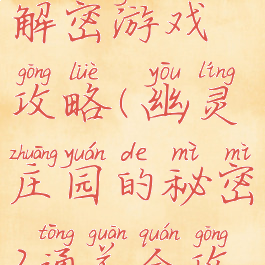 解密游戏
gōng lüè yōu líng
攻略(幽灵
zhuāng yuán de mì mì
庄园的秘密
tōng guān quán gōng
)通关全攻